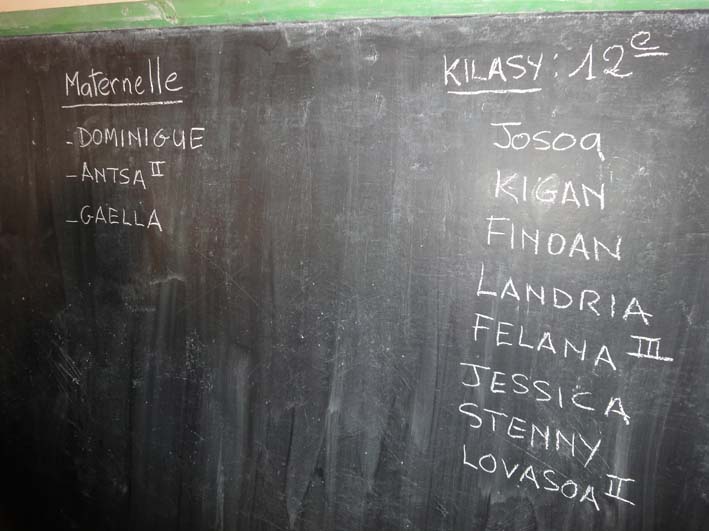 Maternelle
- DOMINIQUE
- ANTSA II
- GAELLA
KILASY : 12e
Josoa
KIGAN
FINOAN
LANDRIA
FELANA III
JESSICA
STENNY
LOVASOA II